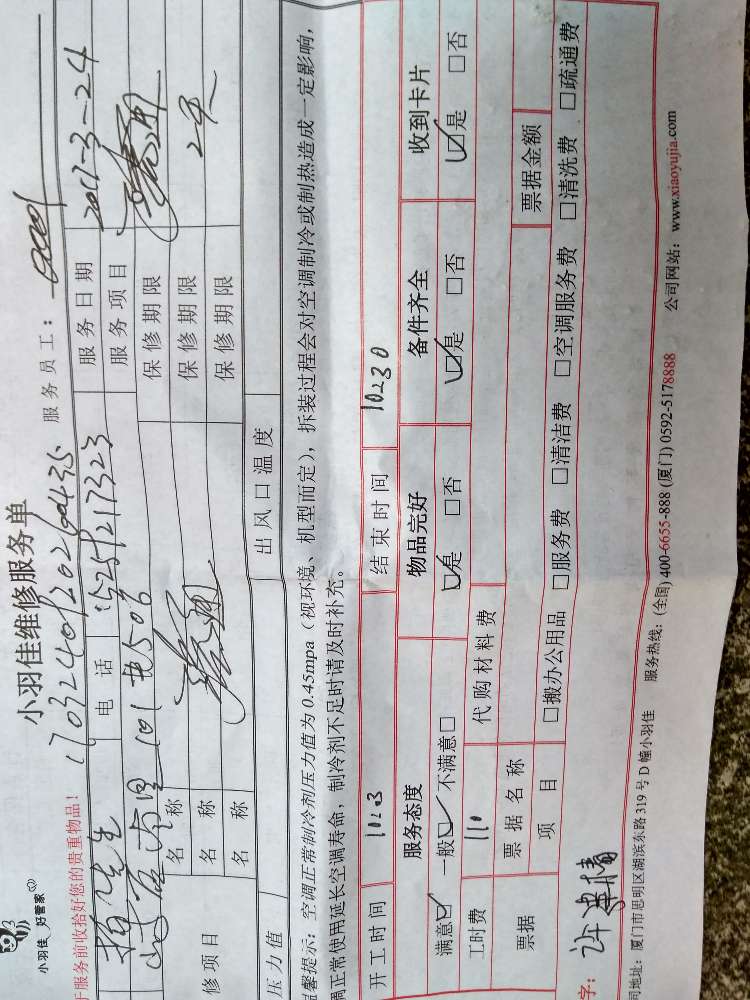 小羽佳 好管家
小羽佳维修服务单
于服务前收拾好您的贵重物品! 服务员工:
电话 15251217323 服务日期 2017-3-24
服务项目
修项目 名称 保修期限
名称 保修期限 2年
名称 保修期限
压力值 出风口温度
温馨提示:空调正常制冷剂压力值为 0.45mpa(视环境、机型而定),拆装过程会对空调制冷或制热造成一定影响,
调正常使用延长空调寿命,制冷剂不足时请及时补充。
开工时间 结束时间
服务态度 物品完好 备件齐全 收到卡片
满意☑ 一般☑ 不满意□ ☑是 □否 ☑是 □否 ☑是 □否
工时费 110 代购材料费
票据 票据名称 票据金额
项目 □搬办公用品 □服务费 □清洁费 □空调服务费 □清洗费 □疏通费
字:
司地址:厦门市思明区湖滨东路 319 号 D 幢小羽佳 服务热线:(全国) 400-6655-888 (厦门) 0592-5178888 公司网站:www.xiaoyujia.com